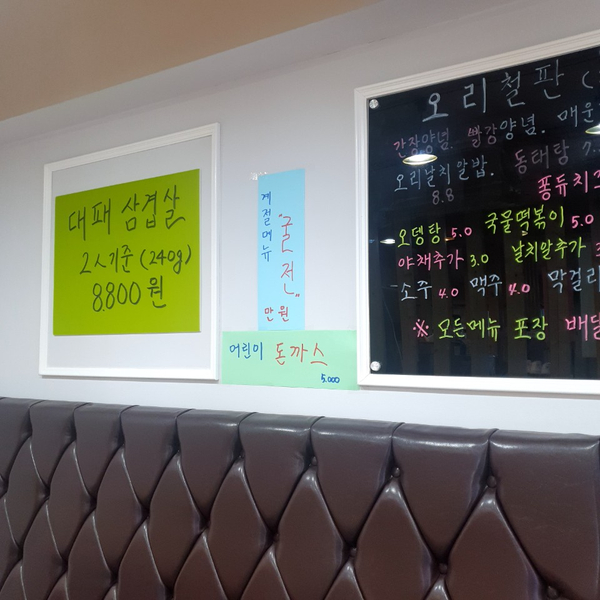 대패 삼겹살
2人기준 (240g)
8.800원
계절메뉴
"굴전"
만원
어린이 돈까스
5.000
오리철판 (
간장양념. 빨강양념. 매운
오리날치알밥. 동태탕 7.
8.8
퐁듀치즈
오뎅탕 5.0 국물떡볶이 5.0
야채추가 3.0 날치알추가 3
소주 4.0 맥주 4.0 막걸리
※ 모든메뉴 포장 배달